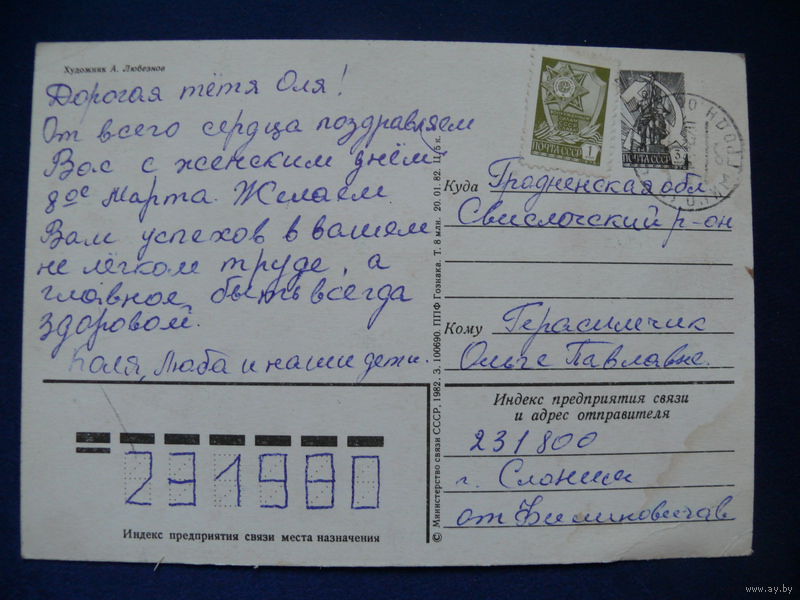 Художник А. Любезнов
Дорогая тётя Оля!
От всего сердца поздравляем
Вас с женским днём
8ое Марта. Желаем
Вам успехов в вашем
не лёгком труде, а
главное быть всегда
здоровой.
Коля, Люба и наши дети.
Индекс предприятия связи места назначения
© Министерство связи СССР, 1982. З. 100690. ППФ Гознака. Т. 8 млн. 20. 01. 82. Ц. 5 к.
ПОЧТА СССР 1
ПОЧТА СССР
Куда Гродненская обл
Свислочский р-он
Кому Герасимчик
Ольге Павлавне.
Индекс предприятия связи
и адрес отправителя
231800
г. Слоним
от
231980
www.ay.by